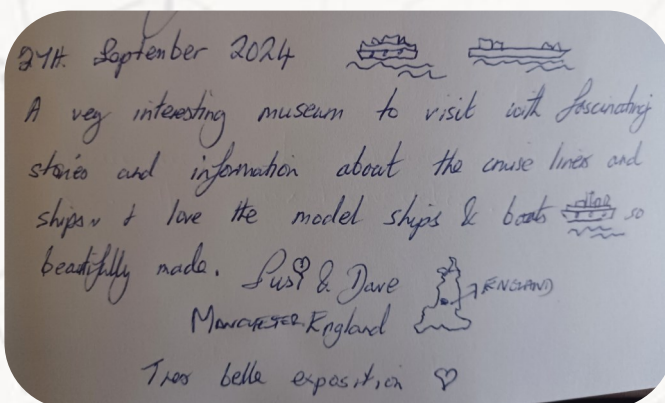 24th September 2024
A very interesting museum to visit with fascinating
stories and information about the cruise lines and
ships I love the model ships & boats so
beautifully made.
Susi & Dave
ENGLAND
Manchester England
Tres belle exposition